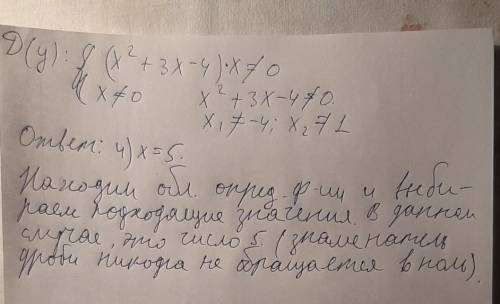 D(y): { (x² + 3x - 4)·x ≠ 0
{ x ≠ 0 x² + 3x - 4 ≠ 0.
x₁ ≠ -4; x₂ ≠ 1
Ответ: 4) x = 5.
Находим обл. опред. ф-ии и выби-
раем подходящие значения. В данном
случае, это число 5. (знаменатель
дроби никогда не обращается в ноль).